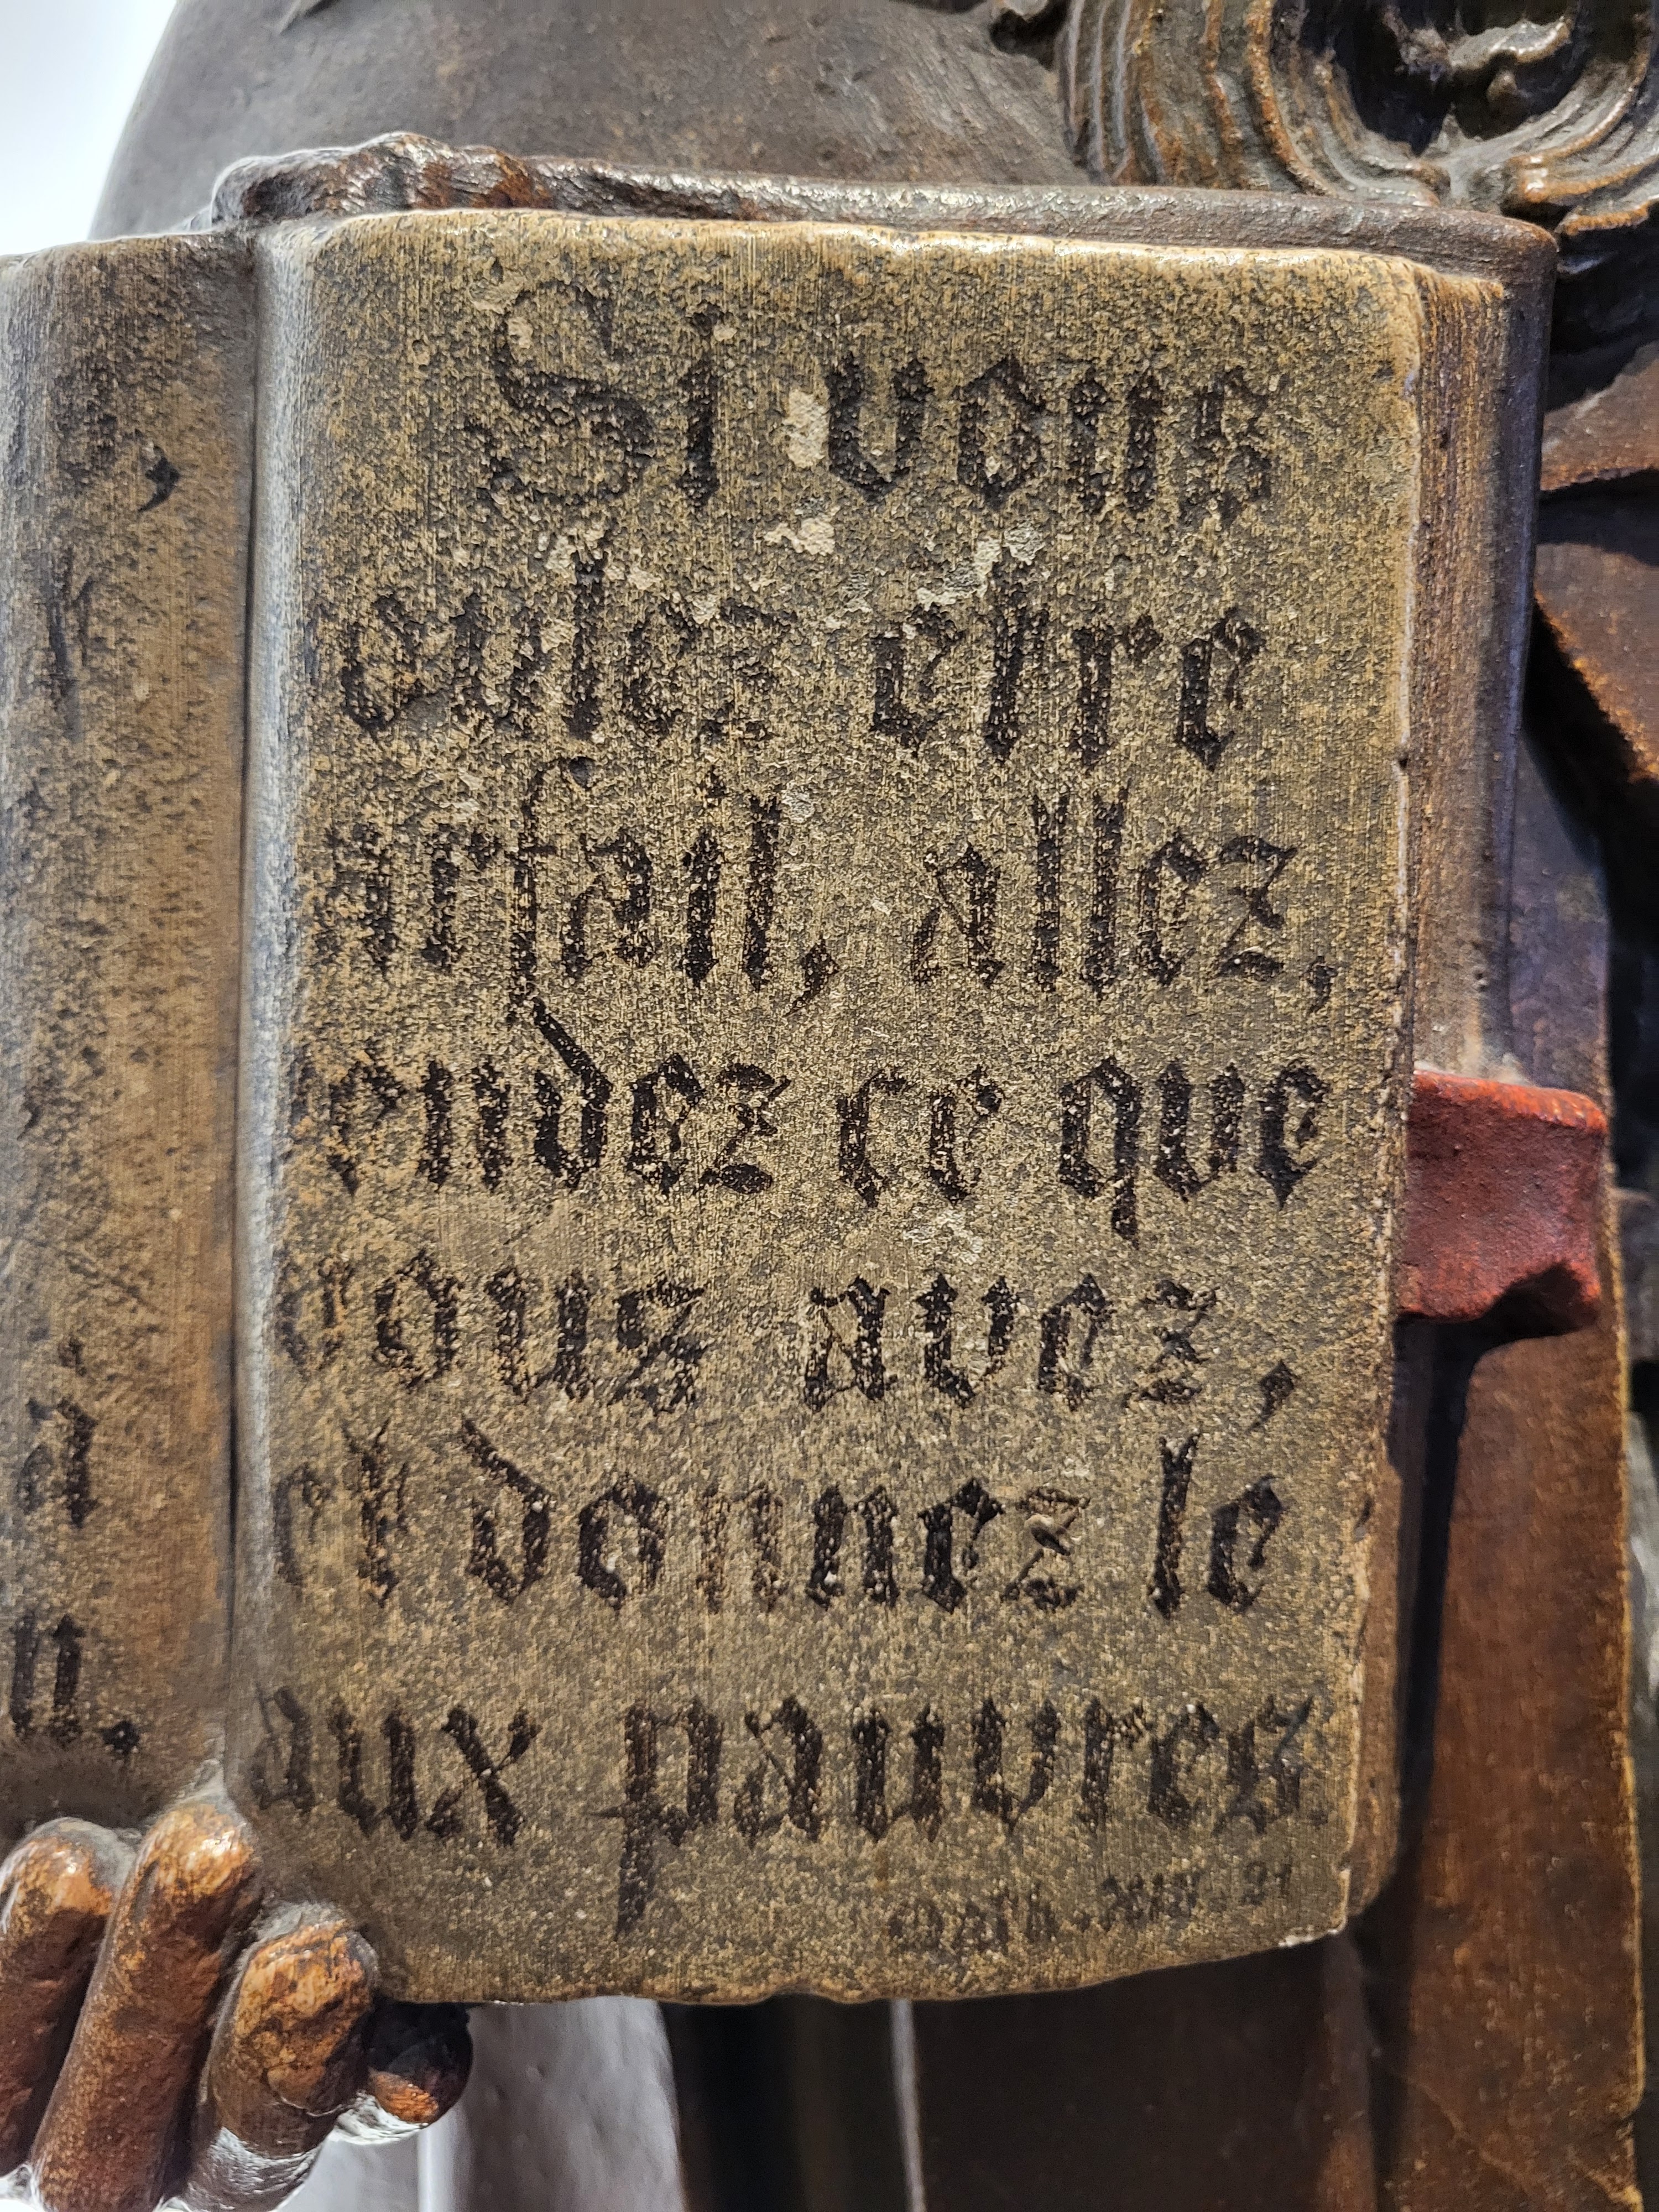 ,
à
n.
Si vous
oulez etre
arfait, allez,
endez ce que
vous avez,
et donnez le
aux pauvres
Matth. XIX. 21